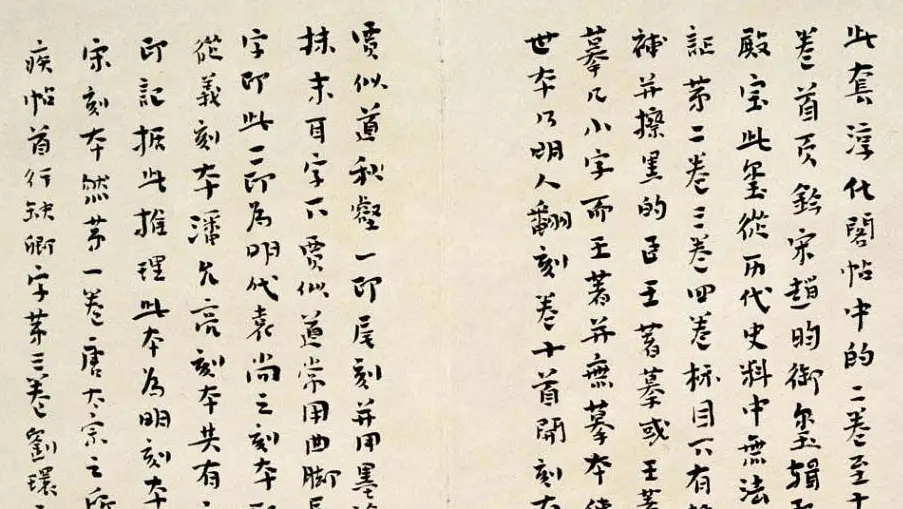 此套淳化閣帖中的二卷至十
卷首页鈐宋趙昀御玺辑熙
殿宝此玺從历代史料中無法
証茅二卷三卷四卷标目下有
補并擦黑的臣王著摹或王著
摹几小字而王著并無摹本
世本乃明人翻刻卷十首開刻有
賈似道秋壑一印尾刻并用墨
抹末耳字下賈似道常用曲脚
字印此二印為明代袁尚之刻本
從義刻本潘允亮刻本共有
印記据此推理此本為明刻本
宋刻本然茅一卷唐太宗之
疾帖首行缺卿字茅三卷劉環